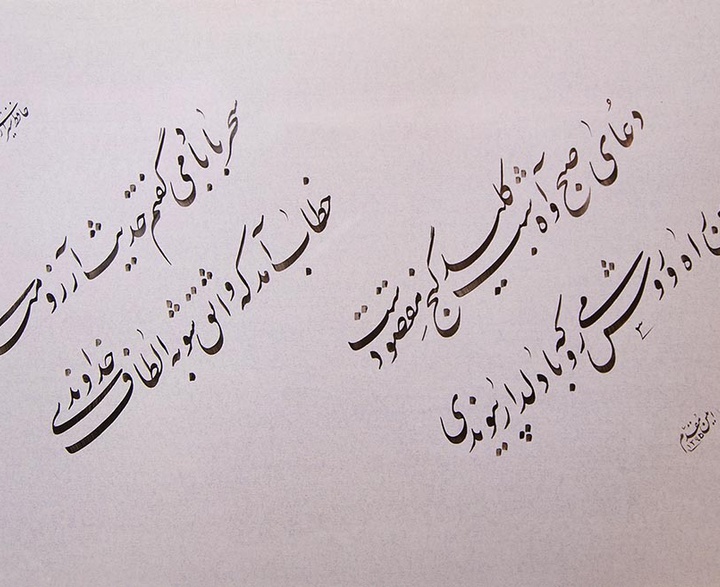 حافظ
سحر با باد می گفتم حدیث آرزو
خطاب آمد که واثق شو به الطاف خداوندی
دعای صبح و آه شب کلید گنج مقصودست
راه و روش می رو که با دلدار پیوندی
امین مقدم